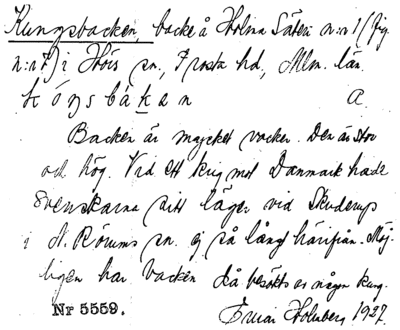 Kungsbacken, backe å Holma Säteri n:r 1 (fig.
n:r 7) i Höörs sn., Frosta hd., Mlm. län.
k ó ŋ s b á k a n A.
Backen är mycket vacker. Den är stor
och hög. Vid ett krig mot Danmark hade
Svenskarna sitt läger vid Skuderup
i N. Rörums sn. ej så långt härifrån. Möj-
ligen har backen då besökts av någon kung.
Nr 5559. Einar Holmberg 1927.